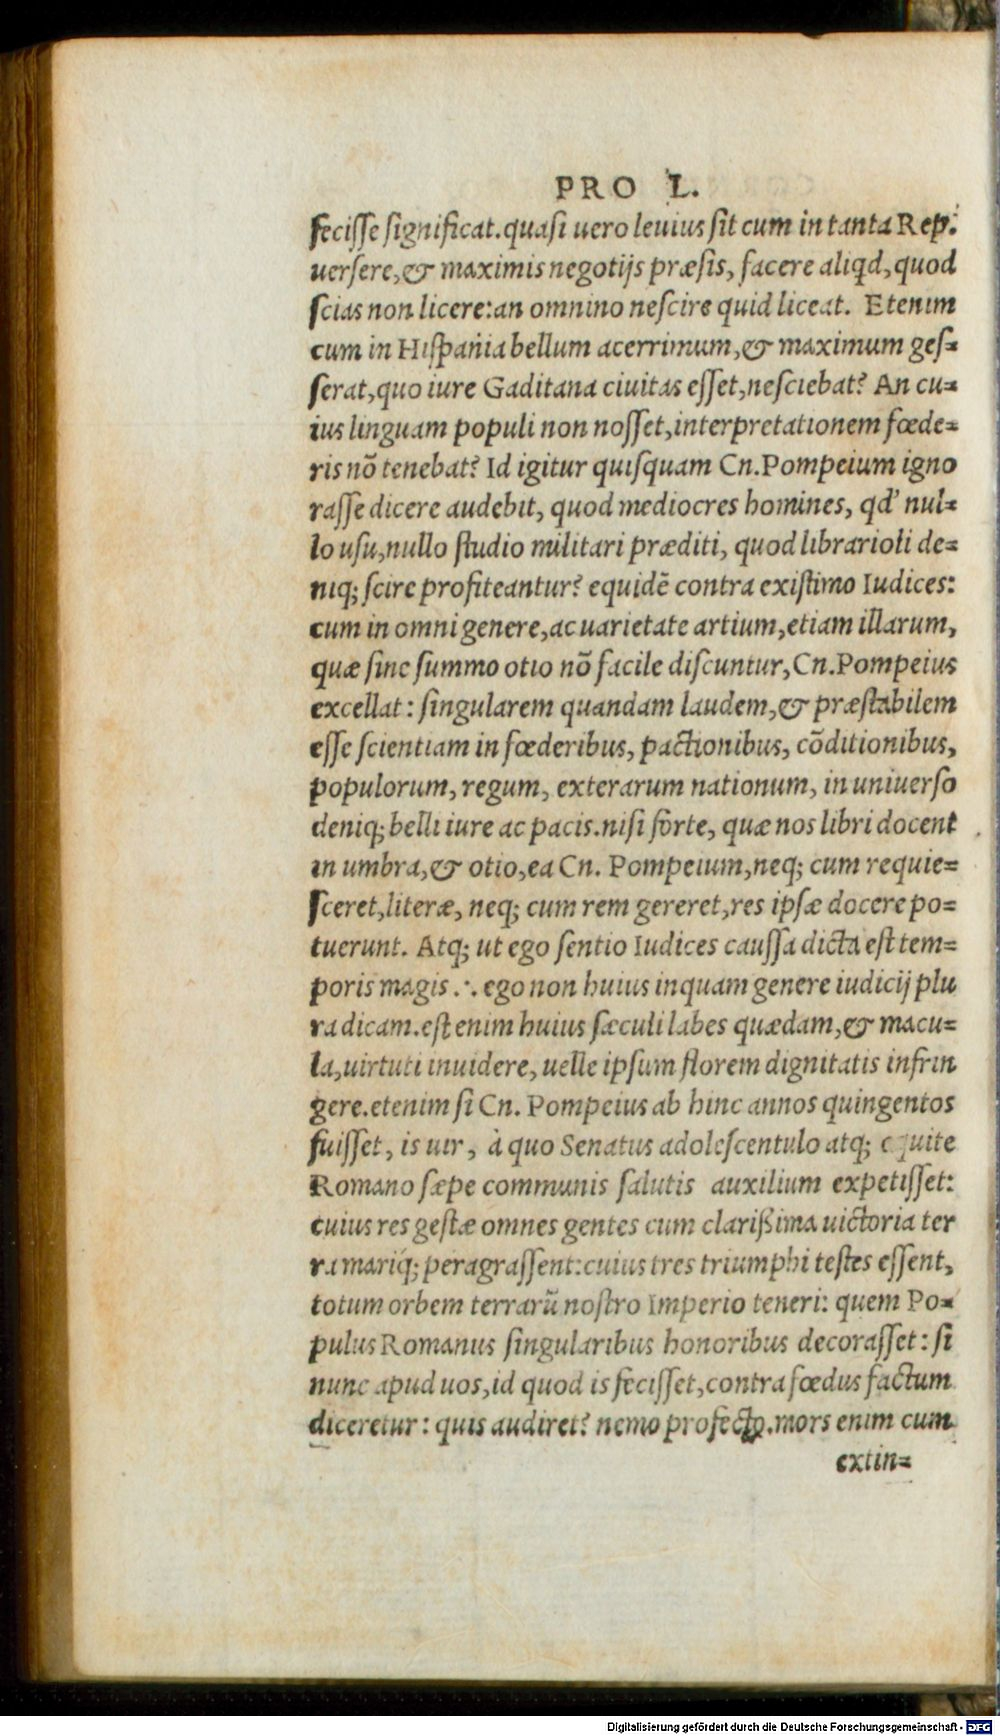 PRO L.
fecisse significat. quasi uero leuius sit cum in tanta Rep.
uersere, & maximis negotijs præsis, facere aliqd, quod
scias non licere: an omnino nescire quid liceat. Etenim
cum in Hispania bellum acerrimum, & maximum ges=
serat, quo iure Gaditana ciuitas esset, nesciebat? An cu=
ius linguam populi non nosset, interpretationem fœde=
ris nõ tenebat? Id igitur quisquam Cn. Pompeium igno
rasse dicere audebit, quod mediocres homines, qd' nul=
lo usu, nullo studio militari præditi, quod librarioli de=
niq; scire profiteantur? equidẽ contra existimo Iudices:
cum in omni genere, ac uarietate artium, etiam illarum,
quæ sine summo otio nõ facile discuntur, Cn. Pompeius
excellat: singularem quandam laudem, & præstabilem
esse scientiam in fœderibus, pactionibus, cõditionibus,
populorum, regum, exterarum nationum, in uniuerso
deniq; belli iure ac pacis. nisi forte, quæ nos libri docent
in umbra, & otio, ea Cn. Pompeium, neq; cum requie=
sceret, literæ, neq; cum rem gereret, res ipsæ docere po=
tuerunt. Atq; ut ego sentio Iudices caussa dicta est tem=
poris magis ∴ ego non huius inquam genere iudicij plu
ra dicam. est enim huius sæculi labes quædam, & macu=
la, uirtuti inuidere, uelle ipsum florem dignitatis infrin
gere. etenim si Cn. Pompeius ab hinc annos quingentos
fuisset, is uir, à quo Senatus adolescentulo atq; equite
Romano sæpe communis salutis auxilium expetisset:
cuius res gestæ omnes gentes cum clarißima uictoria ter
ra mariq́; peragrassent: cuius tres triumphi testes essent,
totum orbem terrarũ nostro Imperio teneri: quem Po=
pulus Romanus singularibus honoribus decorasset: si
nunc apud uos, id quod is fecisset, contra fœdus factum
diceretur: quis audiret? nemo profecto. mors enim cum
extin=
Digitalisierung gefördert durch die Deutsche Forschungsgemeinschaft - DFG